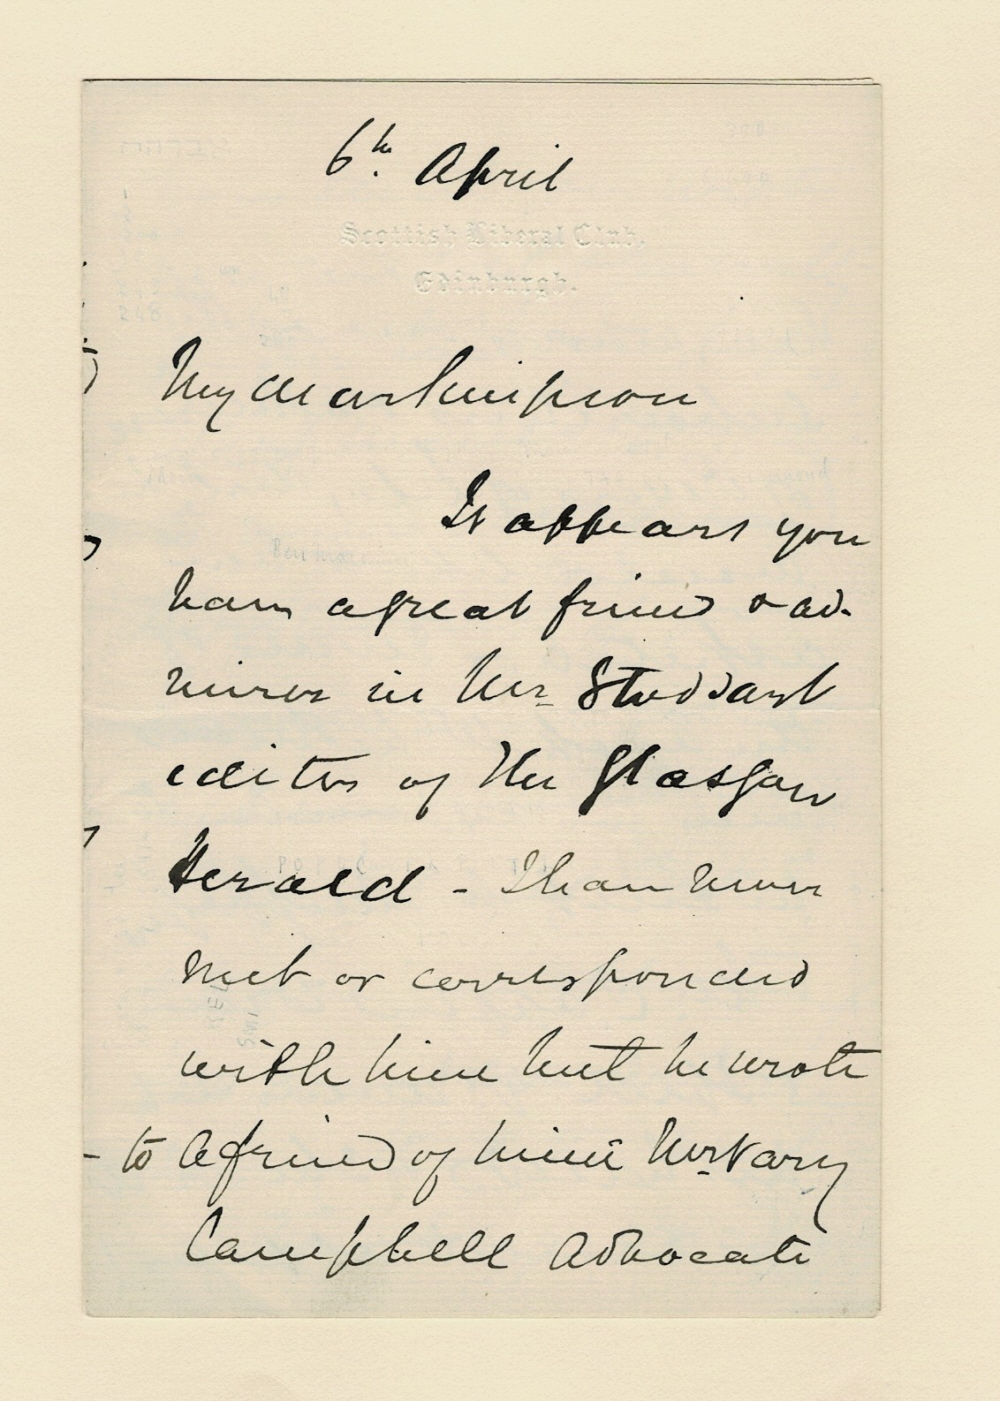 6th. April
Scottish Liberal Club,
Edinburgh.
My dear Simpson
It appears you
have a great friend & ad-
mirer in Mr Stoddart
editor of The Glasgow
Herald - I have never
met or corresponded
with him but he wrote
to a friend of mine Mr Vary
Campbell Advocate